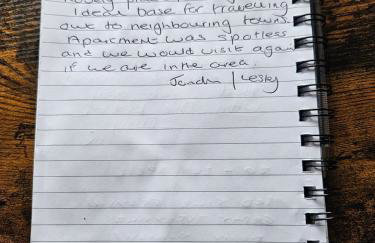 Ideal base for travelling
out to neighbouring towns.
Apartment was spotless
and we would visit again
if we are in the area.
Lesly